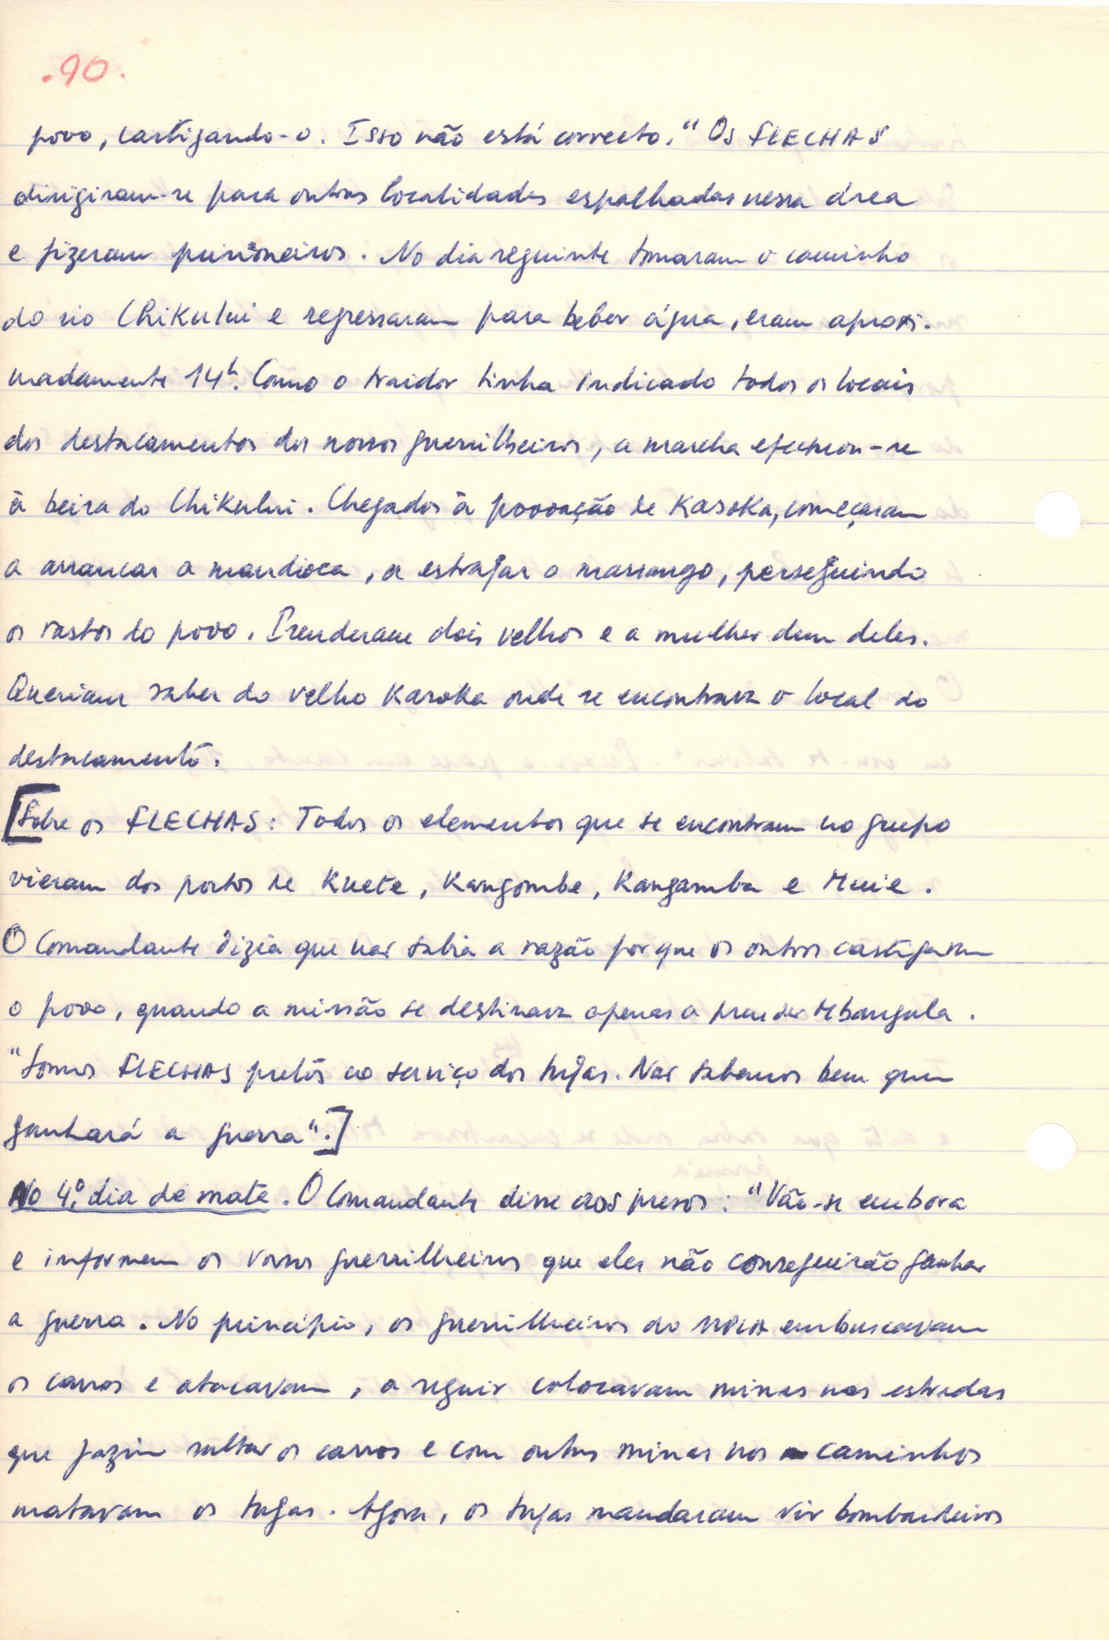 .90.
povo, castigando-o. Isso não está correcto." Os FLECHAS
dirigiram-se para outras localidades espalhadas nessa área
e fizeram prisioneiros. No dia seguinte tomaram o caminho
do rio Chikului e regressaram para beber água, eram aproxi-
madamente 14h. Como o traidor tinha indicado todos os locais
dos destacamentos dos nossos guerrilheiros, a marcha efectuou-se
à beira do Chikului. Chegados à povoação de Kasoka, começaram
a arrancar a mandioca, a estragar o massango, perseguindo
os rastos do povo. Prenderam dois velhos e a mulher dum deles.
Queriam saber do velho Kasoka onde se encontrava o local do
destacamento.
[Sobre os FLECHAS: Todos os elementos que se encontram no grupo
vieram dos postos de Kuete, Kangombe, Kangamba e Muie.
O Comandante dizia que não sabia a razão porque os outros castigavam
o povo, quando a missão se destinava apenas a prender Mbangula.
"Somos FLECHAS pretos ao serviço dos tugas. Não sabemos bem quem
ganhará a guerra".]
No 4.º dia de mata. O Comandante disse aos presos: "Vão-se embora
e informem os vossos guerrilheiros que eles não conseguirão ganhar
a guerra. No princípio, os guerrilheiros do MPLA emboscavam
os carros e atacavam, a seguir colocavam minas nas estradas
que faziam saltar os carros e com outras minas nos caminhos
matavam os tugas. Agora, os tugas mandaram vir bombardeiros